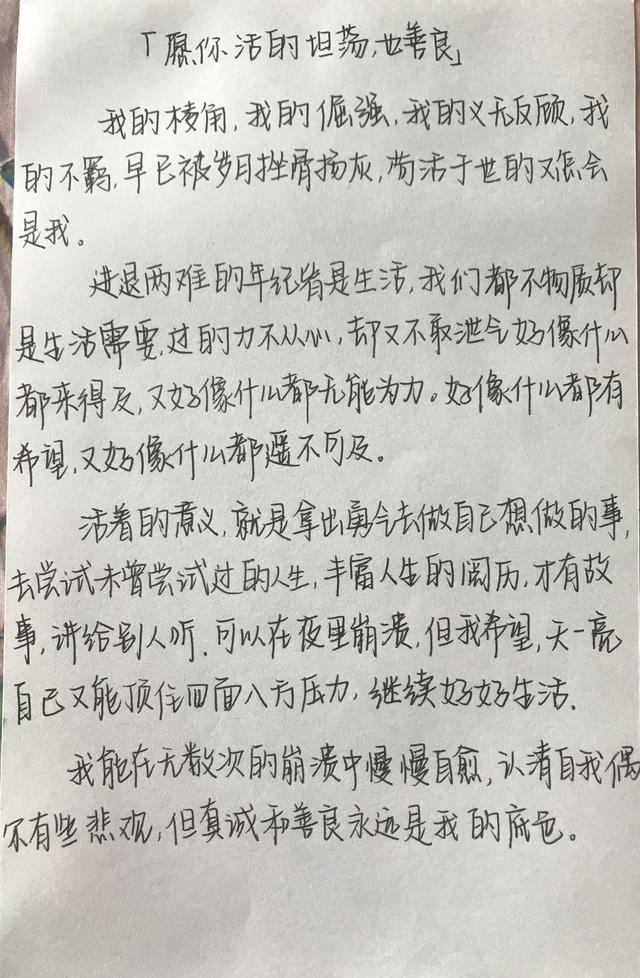 「愿你活的坦荡,也善良」
我的棱角,我的倔强,我的义无反顾,我
的不羁,早已被岁月挫骨扬灰,苟活于世的又怎会
是我。
进退两难的年纪皆是生活,我们都不物质却
是生活需要,过的力不从心,却又不敢泄气好像什么
都来得及,又好像什么都无能为力。好像什么都有
希望,又好像什么都遥不可及。
活着的意义,就是拿出勇气去做自己想做的事,
去尝试未曾尝试过的人生,丰富人生的阅历,才有故
事,讲给别人听.可以在夜里崩溃,但我希望,天一亮
自己又能顶住四面八方压力,继续好好生活.
我能在无数次的崩溃中慢慢自愈,认清自我偶
尔有些悲观,但真诚和善良永远是我的底色。